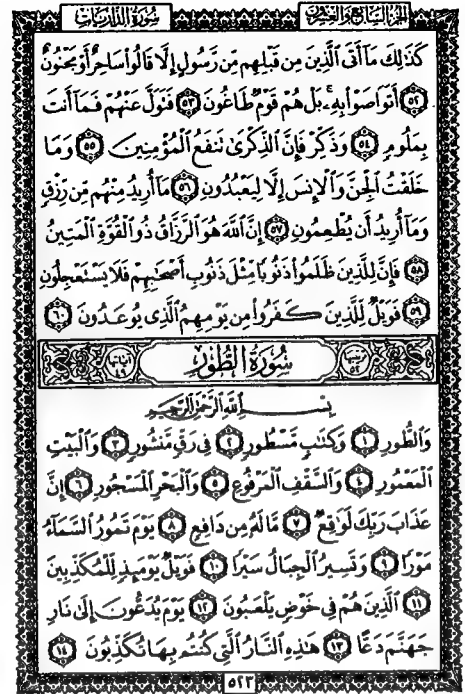 الجزء السابع والعشرون سورة الذاريات
كَذَٰلِكَ مَآ أَتَى ٱلَّذِينَ مِن قَبْلِهِم مِّن رَّسُولٍ إِلَّا قَالُوا۟ سَاحِرٌ أَوْ مَجْنُونٌ
٥٢ أَتَوَاصَوْا۟ بِهِۦ ۚ بَلْ هُمْ قَوْمٌ طَاغُونَ ٥٣ فَتَوَلَّ عَنْهُمْ فَمَآ أَنتَ
بِمَلُومٍ ٥٤ وَذَكِّرْ فَإِنَّ ٱلذِّكْرَىٰ تَنفَعُ ٱلْمُؤْمِنِينَ ٥٥ وَمَا
خَلَقْتُ ٱلْجِنَّ وَٱلْإِنسَ إِلَّا لِيَعْبُدُونِ ٥٦ مَآ أُرِيدُ مِنْهُم مِّن رِّزْقٍ
وَمَآ أُرِيدُ أَن يُطْعِمُونِ ٥٧ إِنَّ ٱللَّهَ هُوَ ٱلرَّزَّاقُ ذُو ٱلْقُوَّةِ ٱلْمَتِينُ
٥٨ فَإِنَّ لِلَّذِينَ ظَلَمُوا۟ ذَنُوبًا مِّثْلَ ذَنُوبِ أَصْحَٰبِهِمْ فَلَا يَسْتَعْجِلُونِ
٥٩ فَوَيْلٌ لِّلَّذِينَ كَفَرُوا۟ مِن يَوْمِهِمُ ٱلَّذِى يُوعَدُونَ ٦٠
ترتيبها ٥٢ سُورَةُ ٱلطُّورِ آياتها ٤٩
بِسْمِ ٱللَّهِ ٱلرَّحْمَٰنِ ٱلرَّحِيمِ
وَٱلطُّورِ ١ وَكِتَٰبٍ مَّسْطُورٍ ٢ فِى رَقٍّ مَّنشُورٍ ٣ وَٱلْبَيْتِ
ٱلْمَعْمُورِ ٤ وَٱلسَّقْفِ ٱلْمَرْفُوعِ ٥ وَٱلْبَحْرِ ٱلْمَسْجُورِ ٦ إِنَّ
عَذَابَ رَبِّكَ لَوَٰقِعٌ ٧ مَّا لَهُۥ مِن دَافِعٍ ٨ يَوْمَ تَمُورُ ٱلسَّمَآءُ
مَوْرًا ٩ وَتَسِيرُ ٱلْجِبَالُ سَيْرًا ١٠ فَوَيْلٌ يَوْمَئِذٍ لِّلْمُكَذِّبِينَ
١١ ٱلَّذِينَ هُمْ فِى خَوْضٍ يَلْعَبُونَ ١٢ يَوْمَ يُدَعُّونَ إِلَىٰ نَارِ
جَهَنَّمَ دَعًّا ١٣ هَٰذِهِ ٱلنَّارُ ٱلَّتِى كُنتُم بِهَا تُكَذِّبُونَ ١٤
٥٢٣